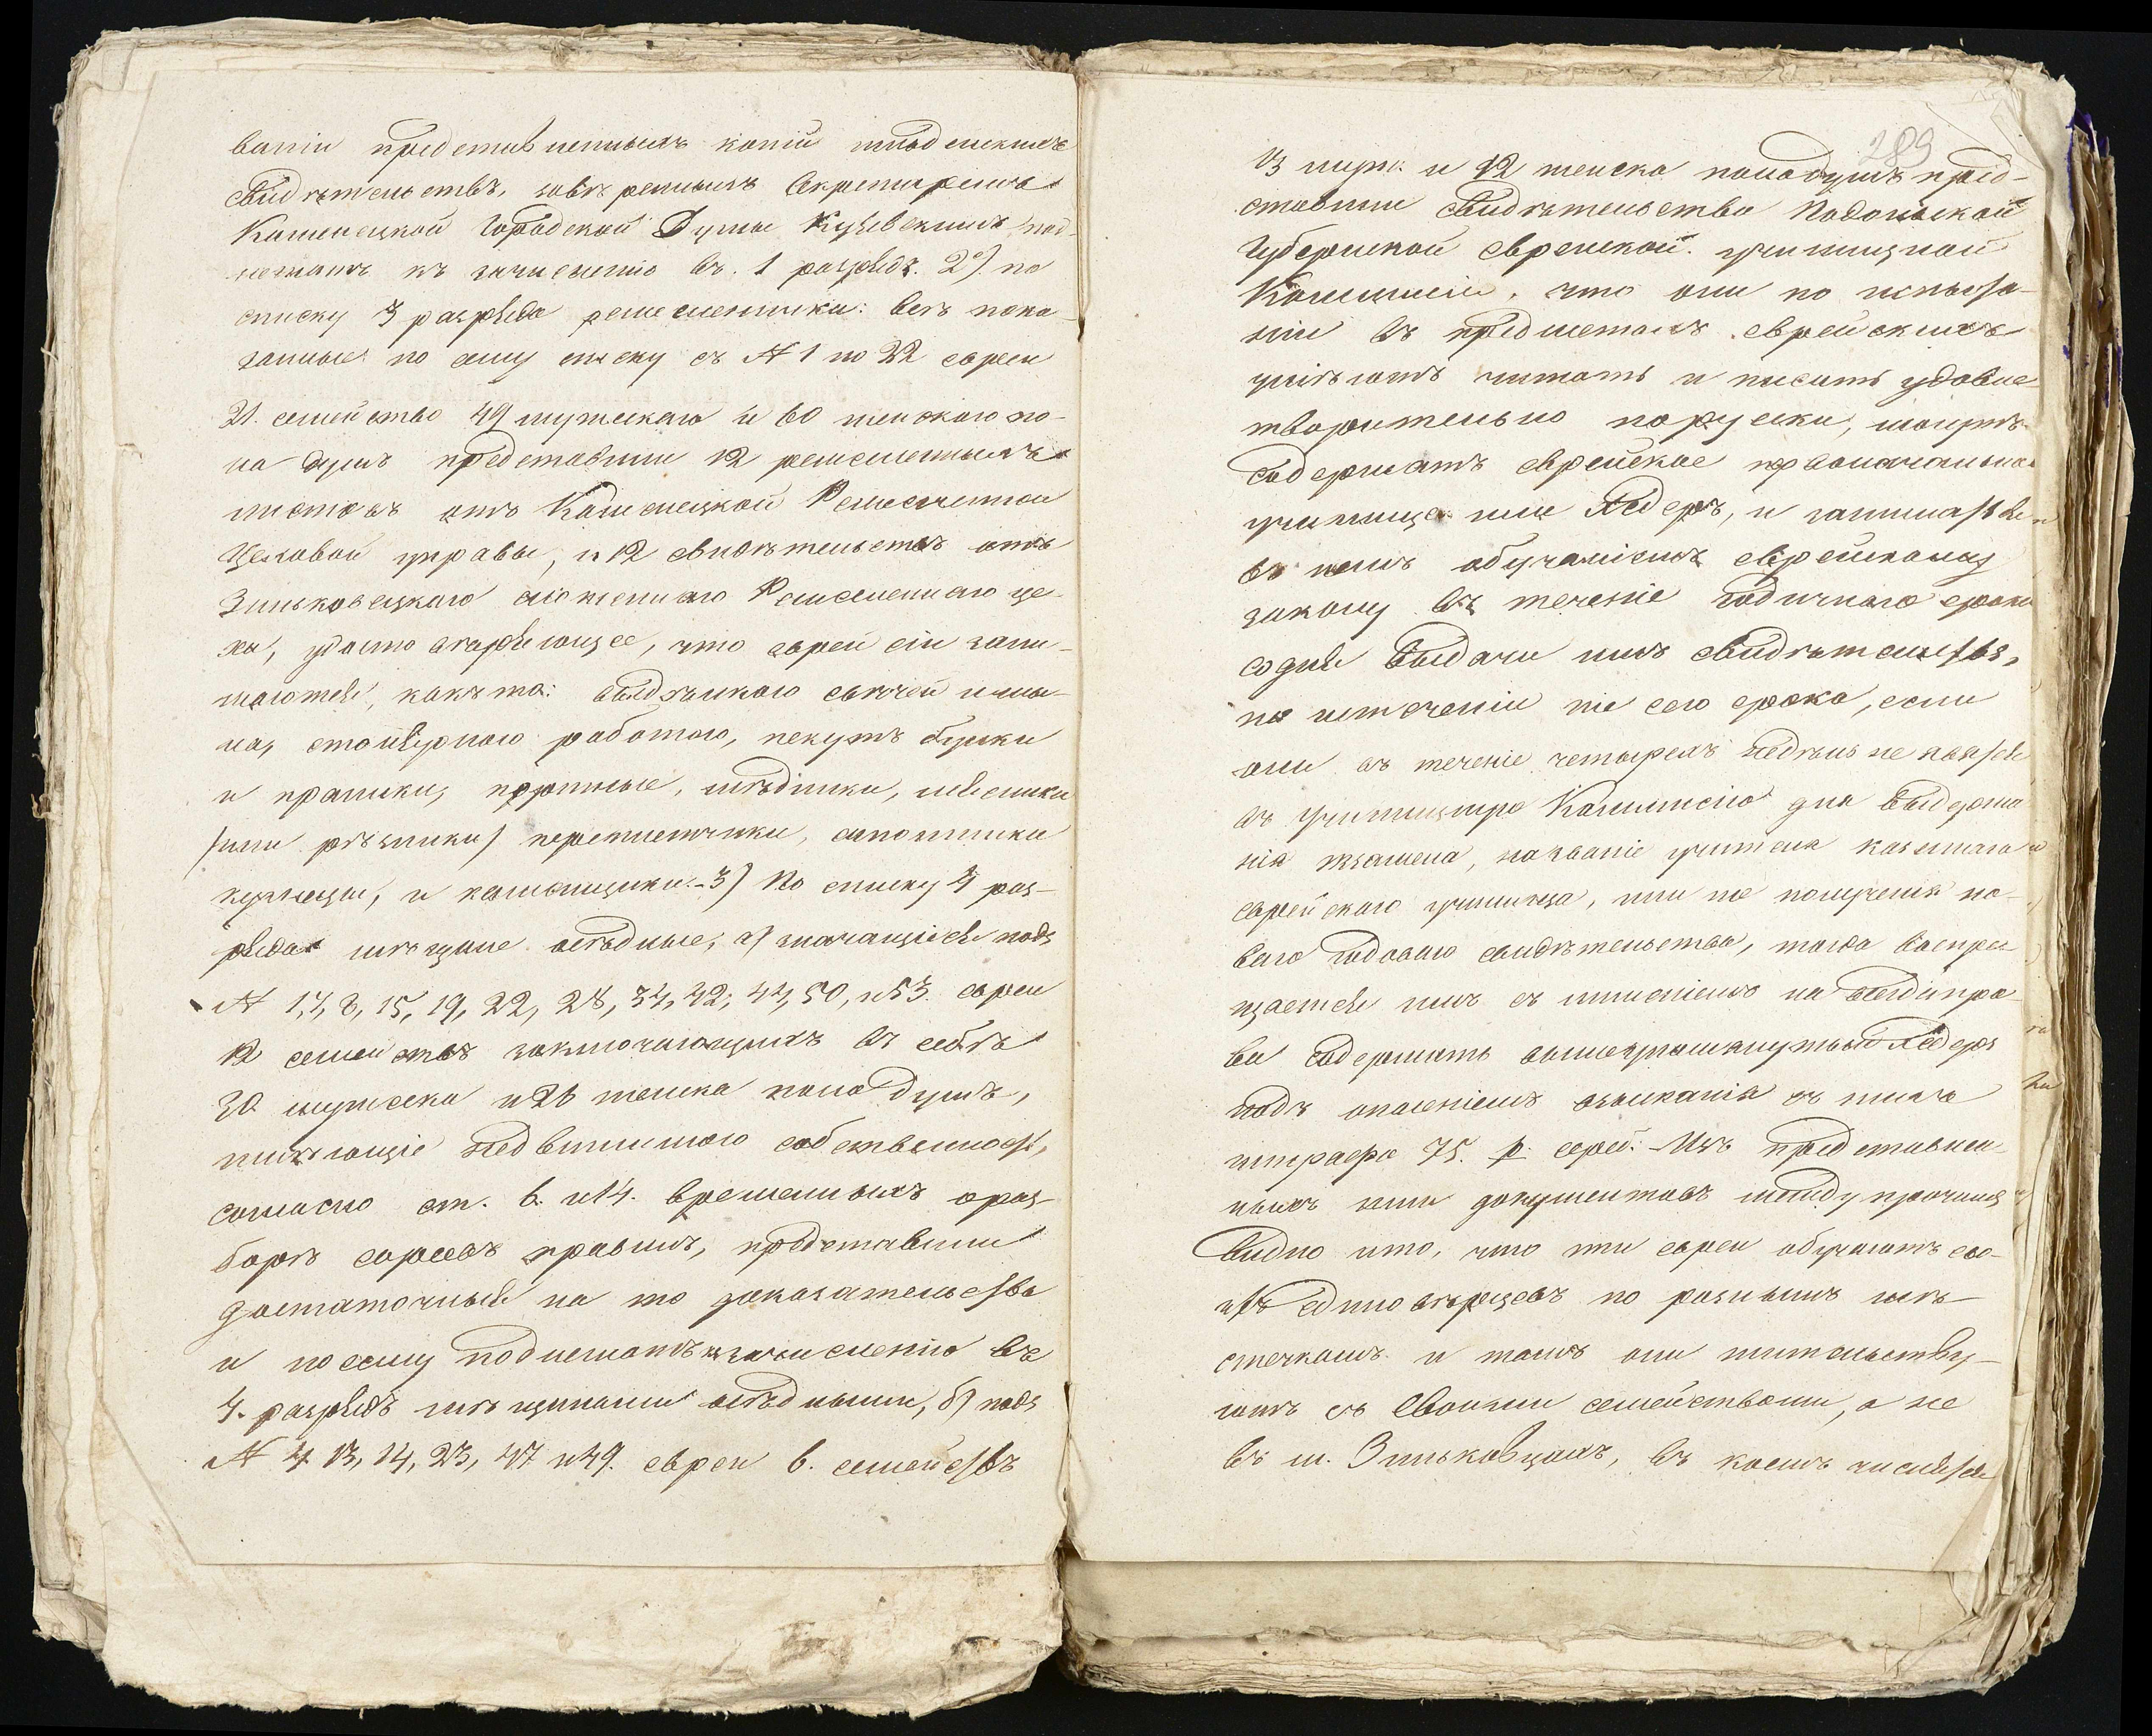 ваніи представленныхъ копій гильдейскихъ
свидѣтельствъ, завѣренныхъ Секретаремъ
Каменецкой Городской Думы под-
лежатъ къ зачисленію въ 1 разрядъ. 2) по
списку 3 разряда ремесленники: всѣ пока-
занные по сему списку съ № 1 по 22 евреи
21. семейство 49 мужескаго и 60 женскаго по-
ла душъ представили 12 ремесленныхъ
листовъ отъ Каменецкой Ремесленной
Цеховой управы, и 12 свидѣтельствъ отъ
Зиньковецкаго сложеннаго Ремесленнаго це-
ха, удостовѣряющее, что евреи сіи зани-
маются, какъ то: выдѣлкою свѣчей и мы-
ла, столярною работою, пекутъ булки
и пряники, портные, мѣдники,
/или рѣзники/ переплетчики, сапожники
кузнецы, и каменщики.-3) По списку 4 раз-
ряда мѣщане осѣдлые, а) значащіеся подъ
№ 1, 7, 8, 15, 19, 22, 28, 34, 42, 44, 50, и 53. евреи
12 семействъ заключающихъ въ себѣ
30 мужеска и 26 женска пола душъ,
имѣющіе недвижимую собственность,
согласно ст. 6. и 14. временныхъ о раз-
борѣ евреевъ правилъ, представили
достаточныя на то доказательства
и посему подлежатъ къ зачисленію въ
4. разрядъ мѣщанами осѣдлыми, б) подъ
№ 4, 13, 14, 23, 47 и 49. евреи 6. семействъ
289
13 муж: и 12 женска пола душъ пред-
ставили свидѣтельства Подольской
Губернской еврейской училищной
Коммисіи, что они по испыта-
ніи въ предметахъ еврейскихъ
умѣютъ читать и писать удовле-
творительно порусски, могутъ
содержать еврейское первоначальное
училище или Хедеръ, и заниматься
въ немъ обученіемъ еврейскому
закону въ теченіе годичнаго срока
со дня выдачи имъ свидѣтельствъ,
по истеченіи же сего срока, если
они въ теченіе четырехъ недѣль не явятся
въ Училищную Коммисію для выдержа-
нія экзамена, на званіе учителя казеннаго
еврейскаго училища, или не получатъ но-
ваго годоваго свидѣтельства, тогда воспре-
щается имъ съ лишеніемъ на всегда пра-
ва содержать вышеупомянутый Хедеръ
подъ опасеніемъ взысканія съ нихъ
штрафа 75. р. сереб: Изъ представлен-
ныхъ ими документовъ между прочимъ
видно и то, что эти евреи обучаютъ сво-
ихъ единовѣрцевъ по разнымъ мѣ-
стечкамъ и тамъ они жительству-
ютъ съ своими семействами, а не
въ м. Зиньковцахъ, въ коемъ числятся